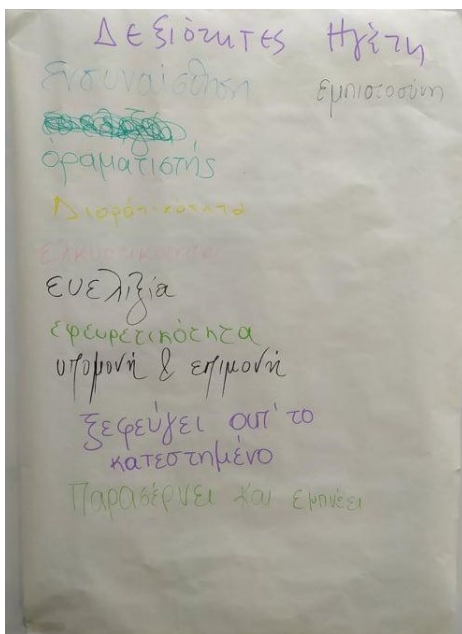 Δεξιότητες Ηγέτη
Ενσυναίσθηση εμπιστοσύνη
οραματιστής
Διορατικότητα
Ελκυστικότητα
ευελιξία
εφευρετικότητα
υπομονή & επιμονή
ξεφεύγει απ' το
κατεστημένο
Παρασέρνει και εμπνέει